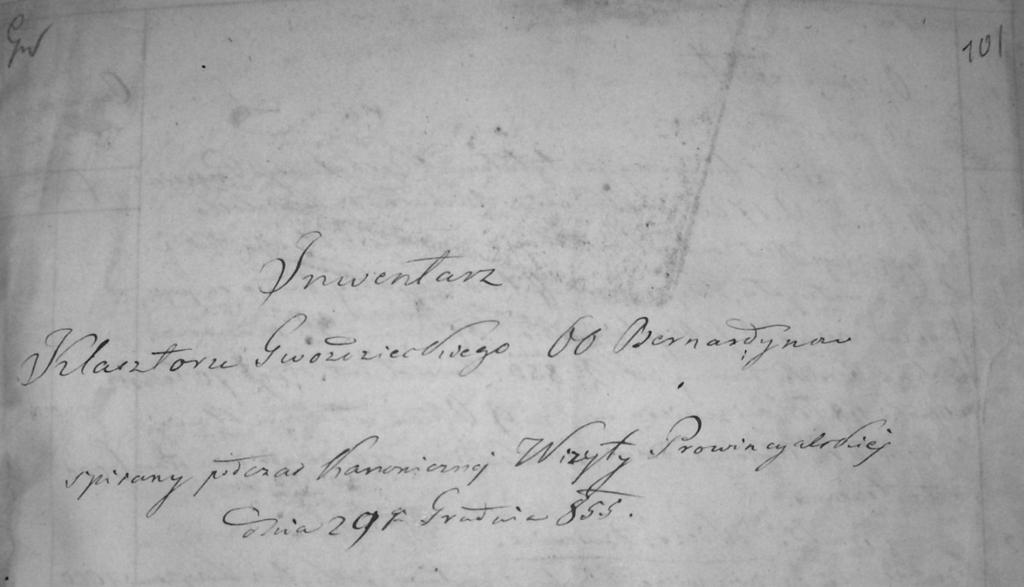 Gw
101
Inwentarz
Klasztoru Gwoździeckiego OO Bernardynow
spisany podczas kanonicznej Wizyty Prowincyalskiej
dnia 29º Grudnia 855.